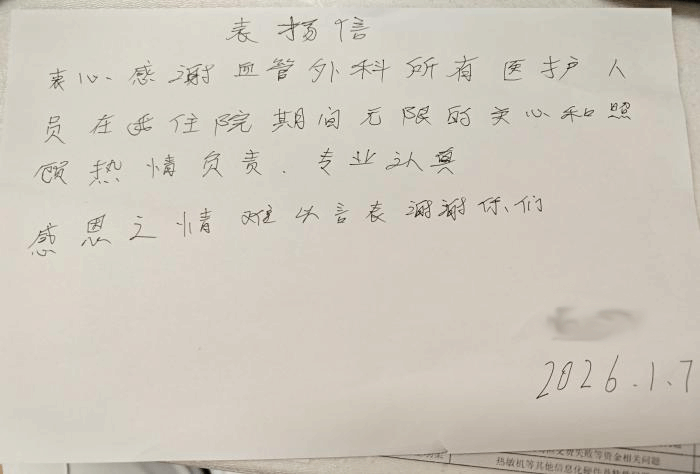 表扬信
衷心感谢血管外科所有医护人
员在住院期间无限的关心和照
顾热情负责、专业认真
感恩之情难以言表谢谢你们
2026.1.7
等资金相关问题
热敏机等其他信息化硬件